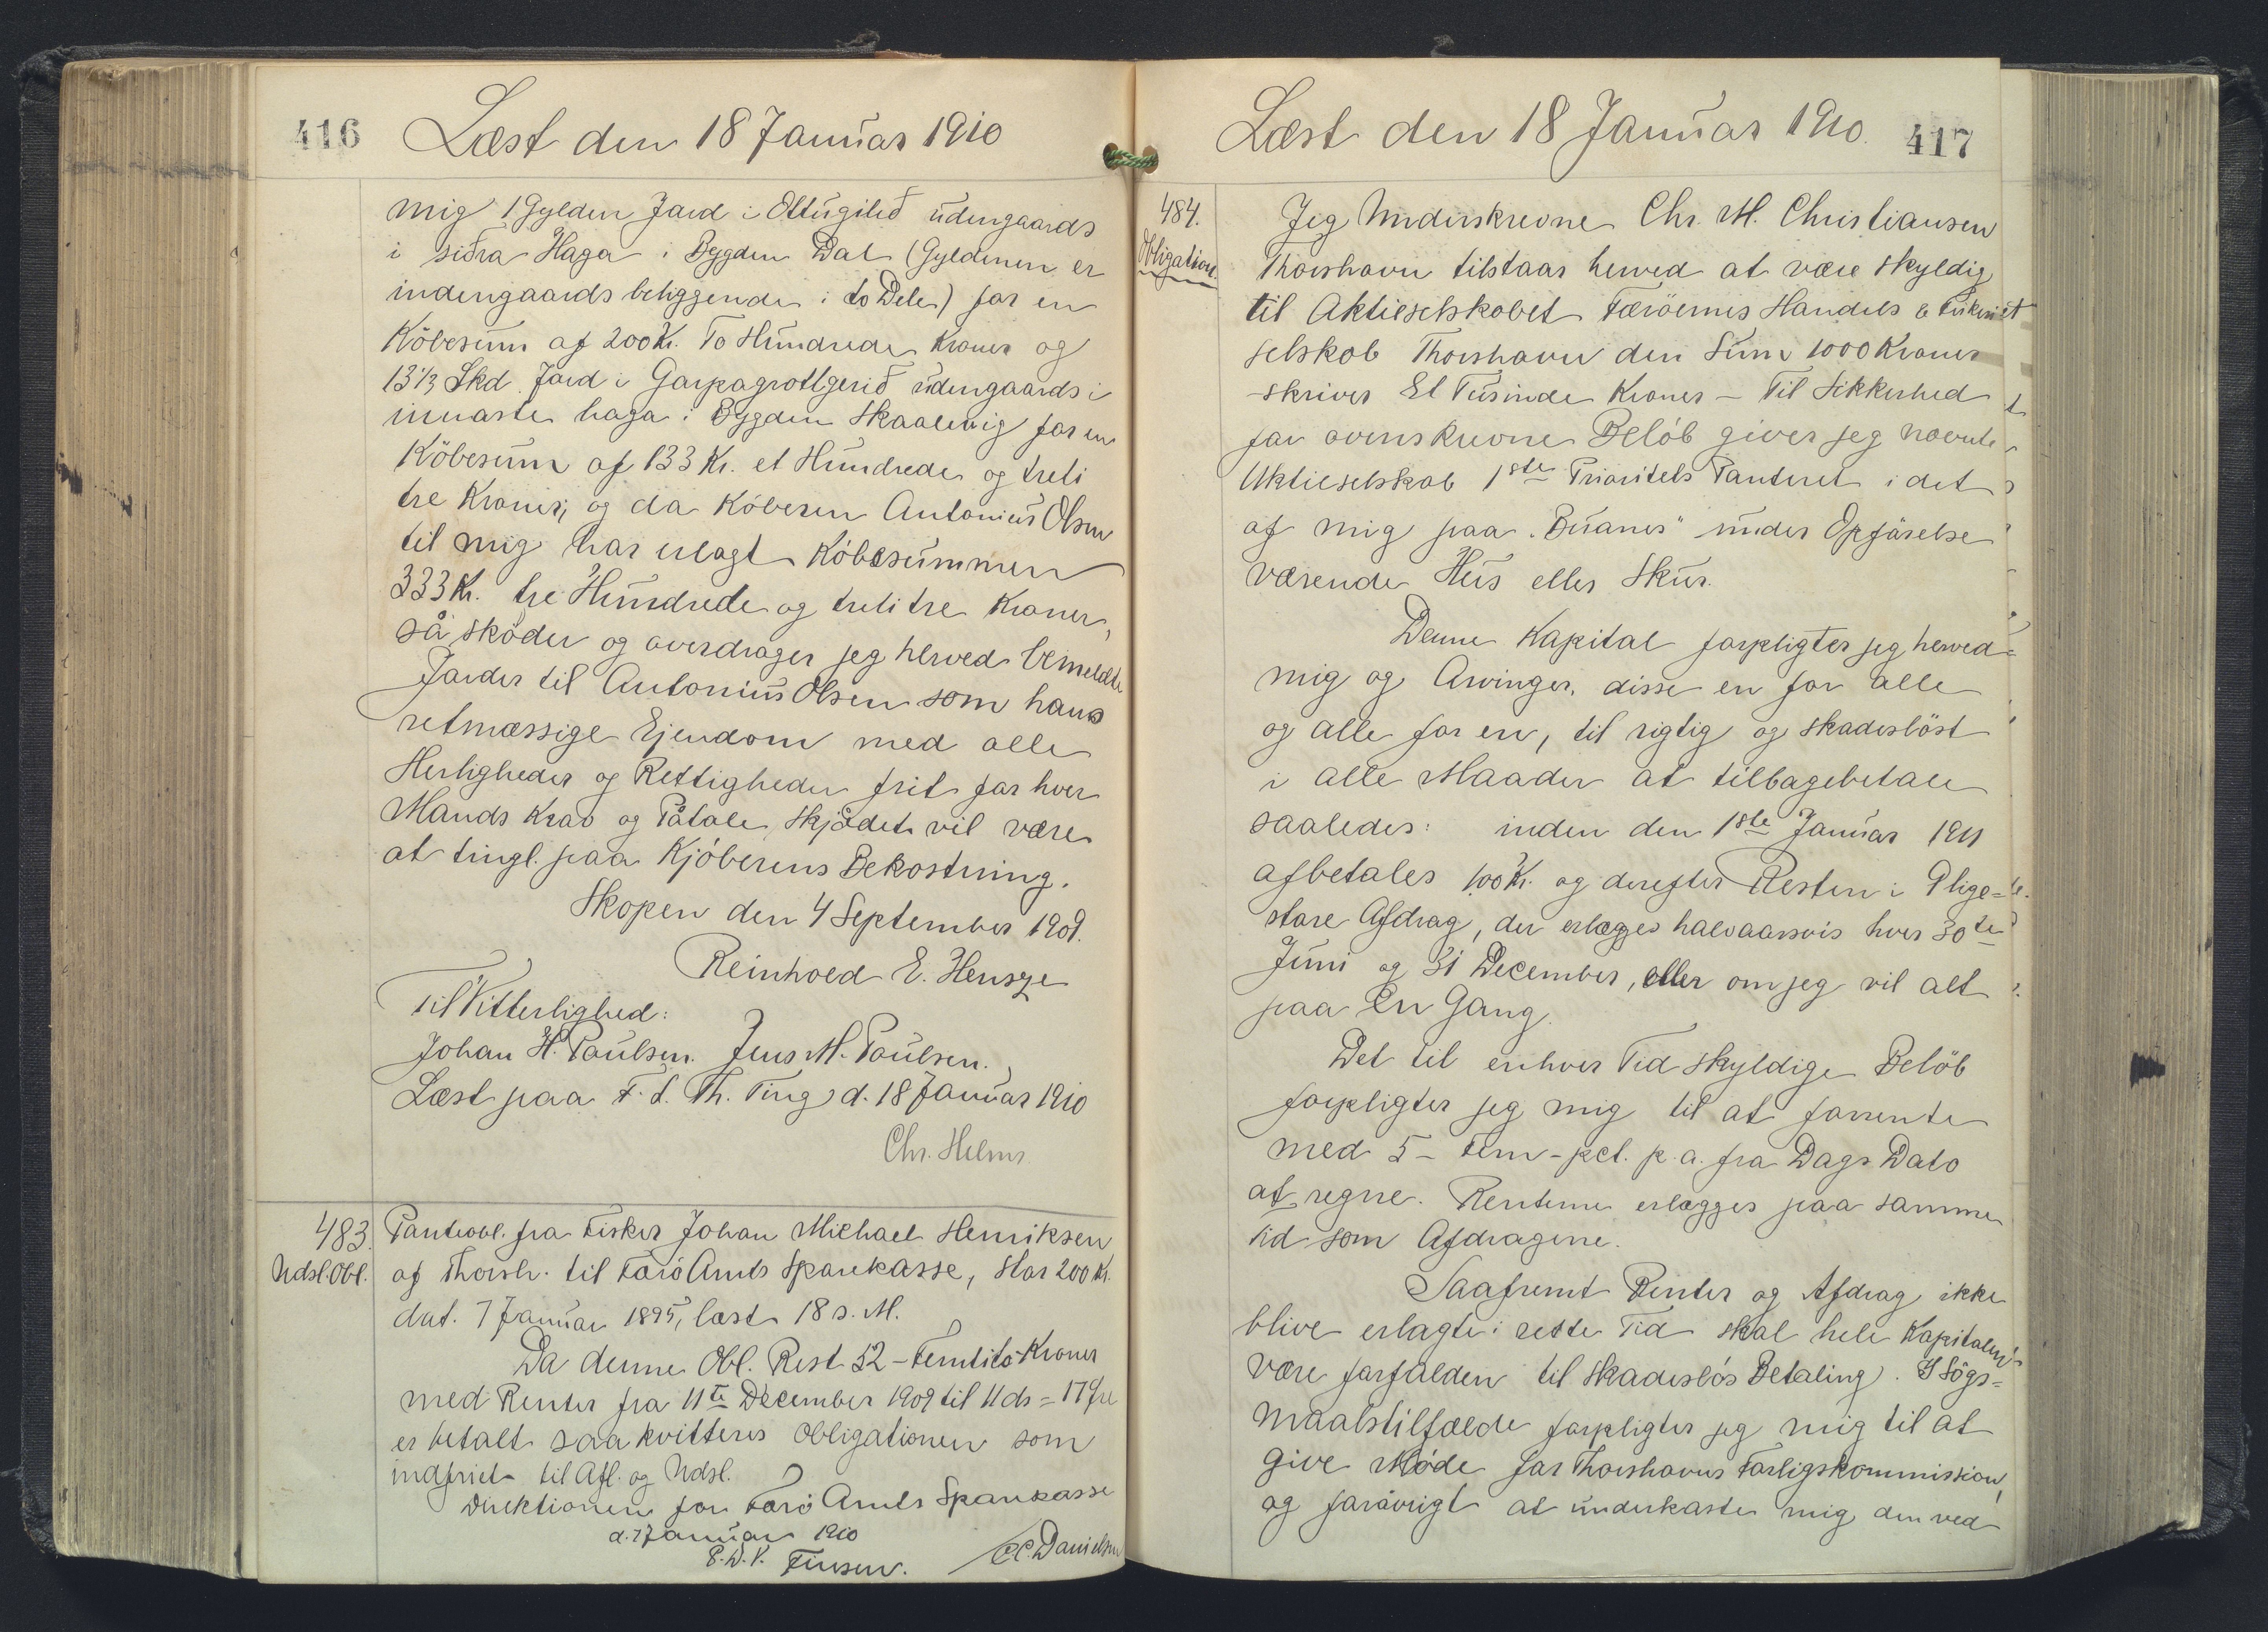 416 Læst den 18 Januar 1910
mig 1 Gylden Jord i Ottugilið udengaards
i siðra Haga i Bygden Dal (Gyldenen er
indengaards beliggende i to Dele) for en
Köbesum af 200 Kr. To Hundrede Kroner og
13 1/3 Skd Jord i Garpagrottgerið udengaards i
innaste haga i Bygden Skaalevig for en
Köbesum af 133 Kr. et Hundrede og treti
tre Kroner, og da Köberen Antonius Olsen
til mig har erlagt Köbesummen
333 Kr. tre Hundrede og treti tre Kroner,
så sköder og overdrager jeg herved bemeldte
Jorder til Antonius Olsen som hans
retmæssige Ejendom med alle
Herligheder og Rettigheder frit for hver
Mands Krav og Påtale, Skjødet vil være
at tingl. paa Kjöberens Bekostning.
Skopen den 4 September 1909.
Reinhold E. Hensze
Til Vitterlighed:
Johan H. Poulsen. Jens M. Poulsen.
Læst paa F. S. Th. Ting d. 18 Januar 1910
Chr. Helms
483. Panteobl. fra Fisker Johan Michael Henriksen
Udsl. Obl. af Thorsh. til Færö Amts Sparekasse, stor 200 Kr.
dat. 7 Januar 1895, læst 18 s. M.
Da denne Obl. Rest 52 - Femtito Kroner
med Renter fra 11te December 1909 til 11 ds = 17 Øre
er betalt saa kvitteres Obligationen som
indfriet til Afl. og Udsl.
Direktionen for Færö Amts Sparekasse
d. 7 Januar 1910
P.D.V. Finsen. C.C. Danielsen
Læst den 18 Januar 1910. 417
484. Jeg Underskrevne Chr. M. Christiansen
Obligation. Thorshavn tilstaar herved at være skyldig
til Aktieselskabet Færöernes Handels &
selskab Thorshavn den Sum 1000 Kroner
-skriver Et Tusinde Kroner - Til Sikkerhed
for ovenskrevne Belöb giver jeg nævnte
Aktieselskab 1ste Prioritets Panteret i det
af mig paa "Buanes" under Opförelse
værende Hus eller Skur.
Denne Kapital forpligter jeg herved
mig og Arvinger, disse en for alle
og alle for en, til rigtig og skadeslöst
i alle Maader at tilbagebetale
saaledes: inden den 1ste Januar 1911
afbetales 100 Kr. og derefter Resten i 9 lige=
store Afdrag, der erlægges halvaarsvis hver 30te
Juni og 31 December, eller om jeg vil alt
paa En Gang.
Det til enhver Tid skyldige Belöb
forpligter jeg mig til at forrente
med 5 - Fem - pct. p. a. fra Dags Dato
at regne. Renterne erlægges paa samme
Tid som Afdragene.
Saafremt Renter og Afdrag ikke
blive erlagte i rette Tid skal hele Kapitalen
være forfalden til skadeslös Betaling. I Sögs=
maalstilfælde forpligter jeg mig til at
give Möde for Thorshavns Forligskommission,
og forövrigt at underkaste mig den ved